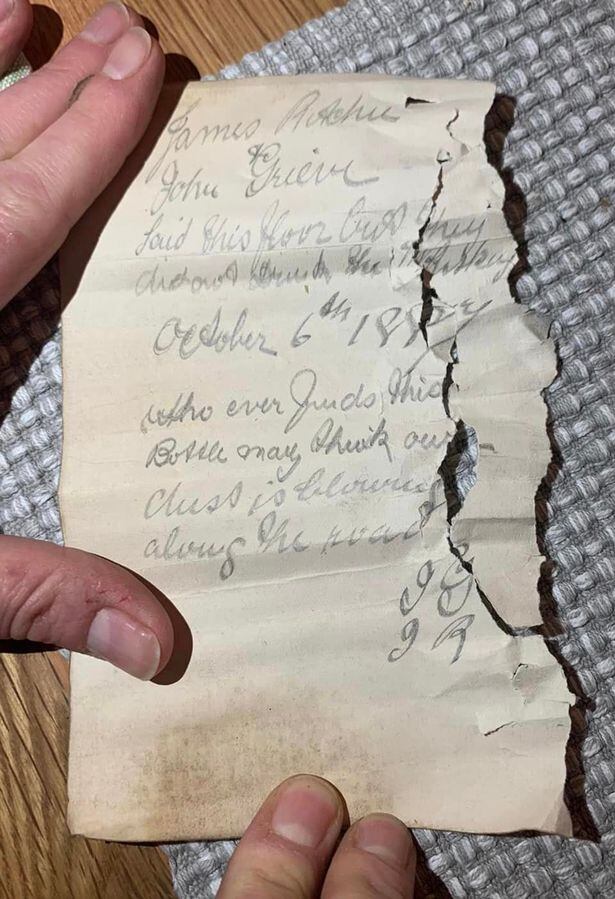 James Ritchie
& John Grieve
Laid this floor but they
did not drink the Whiskey
October 6th 1887
Who ever finds this
Bottle may think our
dust is blowing
along the road
J G
J R